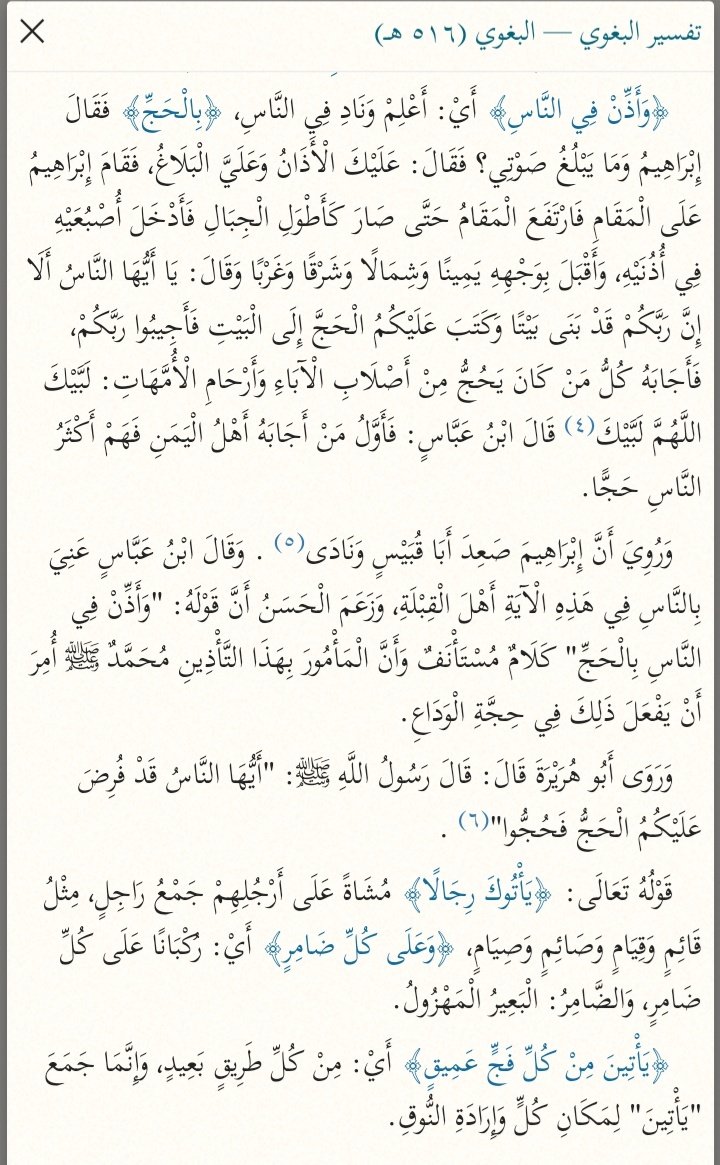 تفسير البغوي — البغوي (٥١٦ هـ)
﴿وَأَذِّنْ فِي النَّاسِ﴾ أَيْ: أَعْلِمْ وَنَادِ فِي النَّاسِ، ﴿بِالْحَجِّ﴾ فَقَالَ
إِبْرَاهِيمُ وَمَا يَبْلُغُ صَوْتِي؟ فَقَالَ: عَلَيْكَ الْأَذَانُ وَعَلَيَّ الْبَلَاغُ، فَقَامَ إِبْرَاهِيمُ
عَلَى الْمَقَامِ فَارْتَفَعَ الْمَقَامُ حَتَّى صَارَ كَأَطْوَلِ الْجِبَالِ فَأَدْخَلَ أُصْبُعَيْهِ
فِي أُذُنَيْهِ، وَأَقْبَلَ بِوَجْهِهِ يَمِينًا وَشِمَالًا وَشَرْقًا وَغَرْبًا وَقَالَ: يَا أَيُّهَا النَّاسُ أَلَا
إِنَّ رَبَّكُمْ قَدْ بَنَى بَيْتًا وَكَتَبَ عَلَيْكُمُ الْحَجَّ إِلَى الْبَيْتِ فَأَجِيبُوا رَبَّكُمْ،
فَأَجَابَهُ كُلُّ مَنْ كَانَ يَحُجُّ مِنْ أَصْلَابِ الْآبَاءِ وَأَرْحَامِ الْأُمَّهَاتِ: لَبَّيْكَ
اللَّهُمَّ لَبَّيْكَ(٤) قَالَ ابْنُ عَبَّاسٍ: فَأَوَّلُ مَنْ أَجَابَهُ أَهْلُ الْيَمَنِ فَهَمْ أَكْثَرُ
النَّاسِ حَجًّا.
وَرُوِيَ أَنَّ إِبْرَاهِيمَ صَعِدَ أَبَا قُبَيْسٍ وَنَادَى(٥) . وَقَالَ ابْنُ عَبَّاسٍ عَنِيَ
بِالنَّاسِ فِي هَذِهِ الْآيَةِ أَهْلَ الْقِبْلَةِ، وَزَعَمَ الْحَسَنُ أَنَّ قَوْلَهُ: "وَأَذِّنْ فِي
النَّاسِ بِالْحَجِّ" كَلَامٌ مُسْتَأْنَفٌ وَأَنَّ الْمَأْمُورَ بِهَذَا التَّأْذِينِ مُحَمَّدٌ ﷺ أُمِرَ
أَنْ يَفْعَلَ ذَلِكَ فِي حِجَّةِ الْوَدَاعِ.
وَرَوَى أَبُو هُرَيْرَةَ قَالَ: قَالَ رَسُولُ اللَّهِ ﷺ: "أَيُّهَا النَّاسُ قَدْ فُرِضَ
عَلَيْكُمُ الْحَجُّ فَحُجُّوا"(٦) .
قَوْلُهُ تَعَالَى: ﴿يَأْتُوكَ رِجَالًا﴾ مُشَاةً عَلَى أَرْجُلِهِمْ جَمْعُ رَاجِلٍ، مِثْلُ
قَائِمٍ وَقِيَامٍ وَصَائِمٍ وَصِيَامٍ، ﴿وَعَلَى كُلِّ ضَامِرٍ﴾ أَيْ: رُكْبَانًا عَلَى كُلِّ
ضَامِرٍ، وَالضَّامِرُ: الْبَعِيرُ الْمَهْزُولُ.
﴿يَأْتِينَ مِنْ كُلِّ فَجٍّ عَمِيقٍ﴾ أَيْ: مِنْ كُلِّ طَرِيقٍ بَعِيدٍ، وَإِنَّمَا جَمَعَ
"يَأْتِينَ" لِمَكَانِ كُلٍّ وَإِرَادَةِ النُّوقِ.